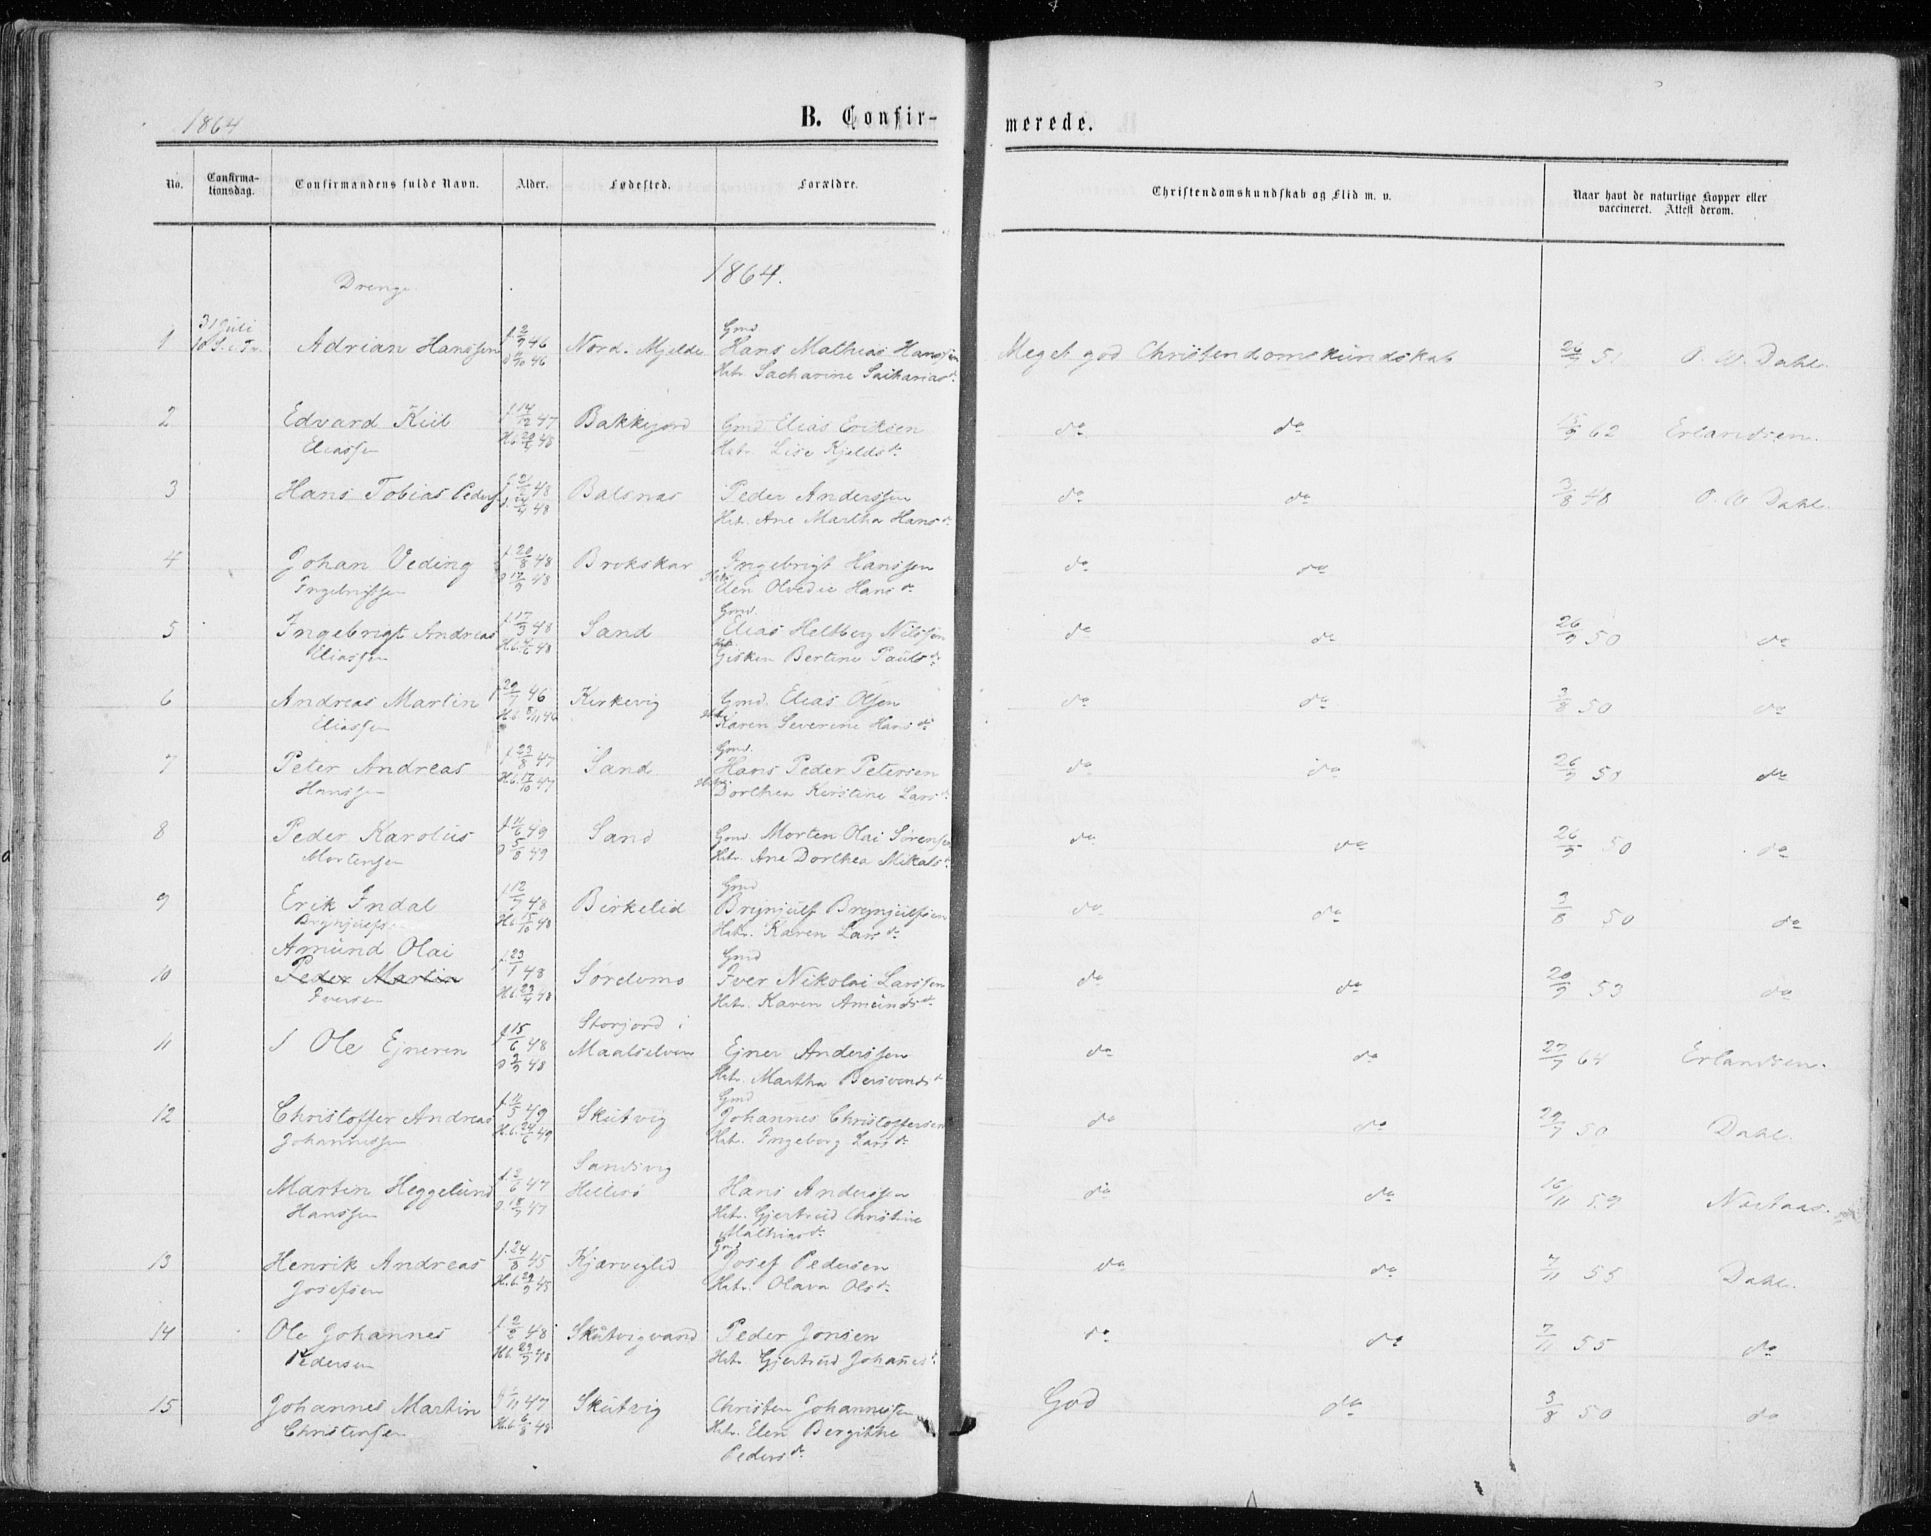 1864
B. Confir-
merede.
No.
Confirma-
tionsdag.
Confirmandens fulde Navn.
Alder.
Fødested.
Forældre.
Christendomskundskab og Flid m. v.
Naar havt de naturlige Kopper eller
vaccineret. Attest derom.
Drenge
1864.
1
31 Juli
Adrian Hanssen
Nord. Mjelde
Gmd
Hans Mathias Hanssen
Hstr. Sacharine Sacharias d.
Meget god Christendomskundskab
O. W. Dahl.
2
Edvard Kiil
Eliassen
Bakkejord
Gmd Elias Eriksen
Hstr. Lise Kjelds d.
do
do
15/9 62
Erlandsen.
3
Hans Tobias Peders
Balsnæs
Peder Anderssen
Hstr. Ane Martha Hans d.
do
do
3/8 48
O. W Dahl.
4
Johan Veding
Ingebrigtsen
f 20/8 48
D 17/9 48
Brokskar
Ingebrigt Hanssen
Elen Hans d.
do
do
5
Ingebrigt Andreas
Eliassen
Sand
Gmd.
Elias Heltberg Nilssøn
Gisken Bertine Pauls d.
do
do
26/9 50
do
6
Andreas Martin
Eliassen
Kirkevig
Gmd. Elias Olsen
Karen Severine Hans d.
do
do
3/8 50
do
7
Peter Andreas
Hanssen
f 23/8 47
Hd. 17/10 47
Sand
Gmd.
Hans Peder Petersen
Dorthea Kirstine Lars d.
do
do
26/9 50
do
8
Peder Karolius
Mortensen
f 11/6 49
D 5/8 49
Sand
Gmd Morten Olai Sørensen
Hstr. Ane Dorthea Mikals d.
do
do
26/9 50
do
9
Erik Indal
Brynjulfsen
Birkelid
Gmd
Brynjulf Brynjulfsen
Hstr. Karen Lars d.
do
do
3/8 50
do
Amund Olai
10
Peder Martin
Iversen
Gmd
Iver Nikolai Larssen
Hstr. Karen Amunds d.
do
do
20/9 53
do
11
Ole Ejneren
f 15/6 48
Storjord i
Maalselven
Ejner Anderssen
Hstr. Martha Bersvends d
do
do
27/7 64
Erlandsen.
12
Christoffer Andreas
Johannessen
f 11/5 49
Hd. 24/6 49
Skutvig
Gmd
Johannes Christoffersen
Hstr. Ingeborg Lars d.
do
do
29/7 50
Dahl.
Martin Heggelund
Hanssen
Sandvig
Hillesø
Hans Anderssen
Hstr. Gjertrud Christine
Mathias d.
do
do
16/11 59
13
Henrik Andreas
Josefsen
f. 24/8 45
Hd. 29/9 45
Kjærviglid
Gmd
Josef Pedersen
Hstr. Olava Ols d.
do
do
7/11 55
Dahl.
14
Ole Johannes
Pedersen
f 2/2 48
Skutvigvand
Peder Jonsen
Hstr Gjertrud Johanes d.
do
do
7/11 55
do
15
Johannes Martin
Christensen
Skutvig
Christen Johannessen
Hstr. Elen Bergithe
Peders d.
God
do
3/8 50
do